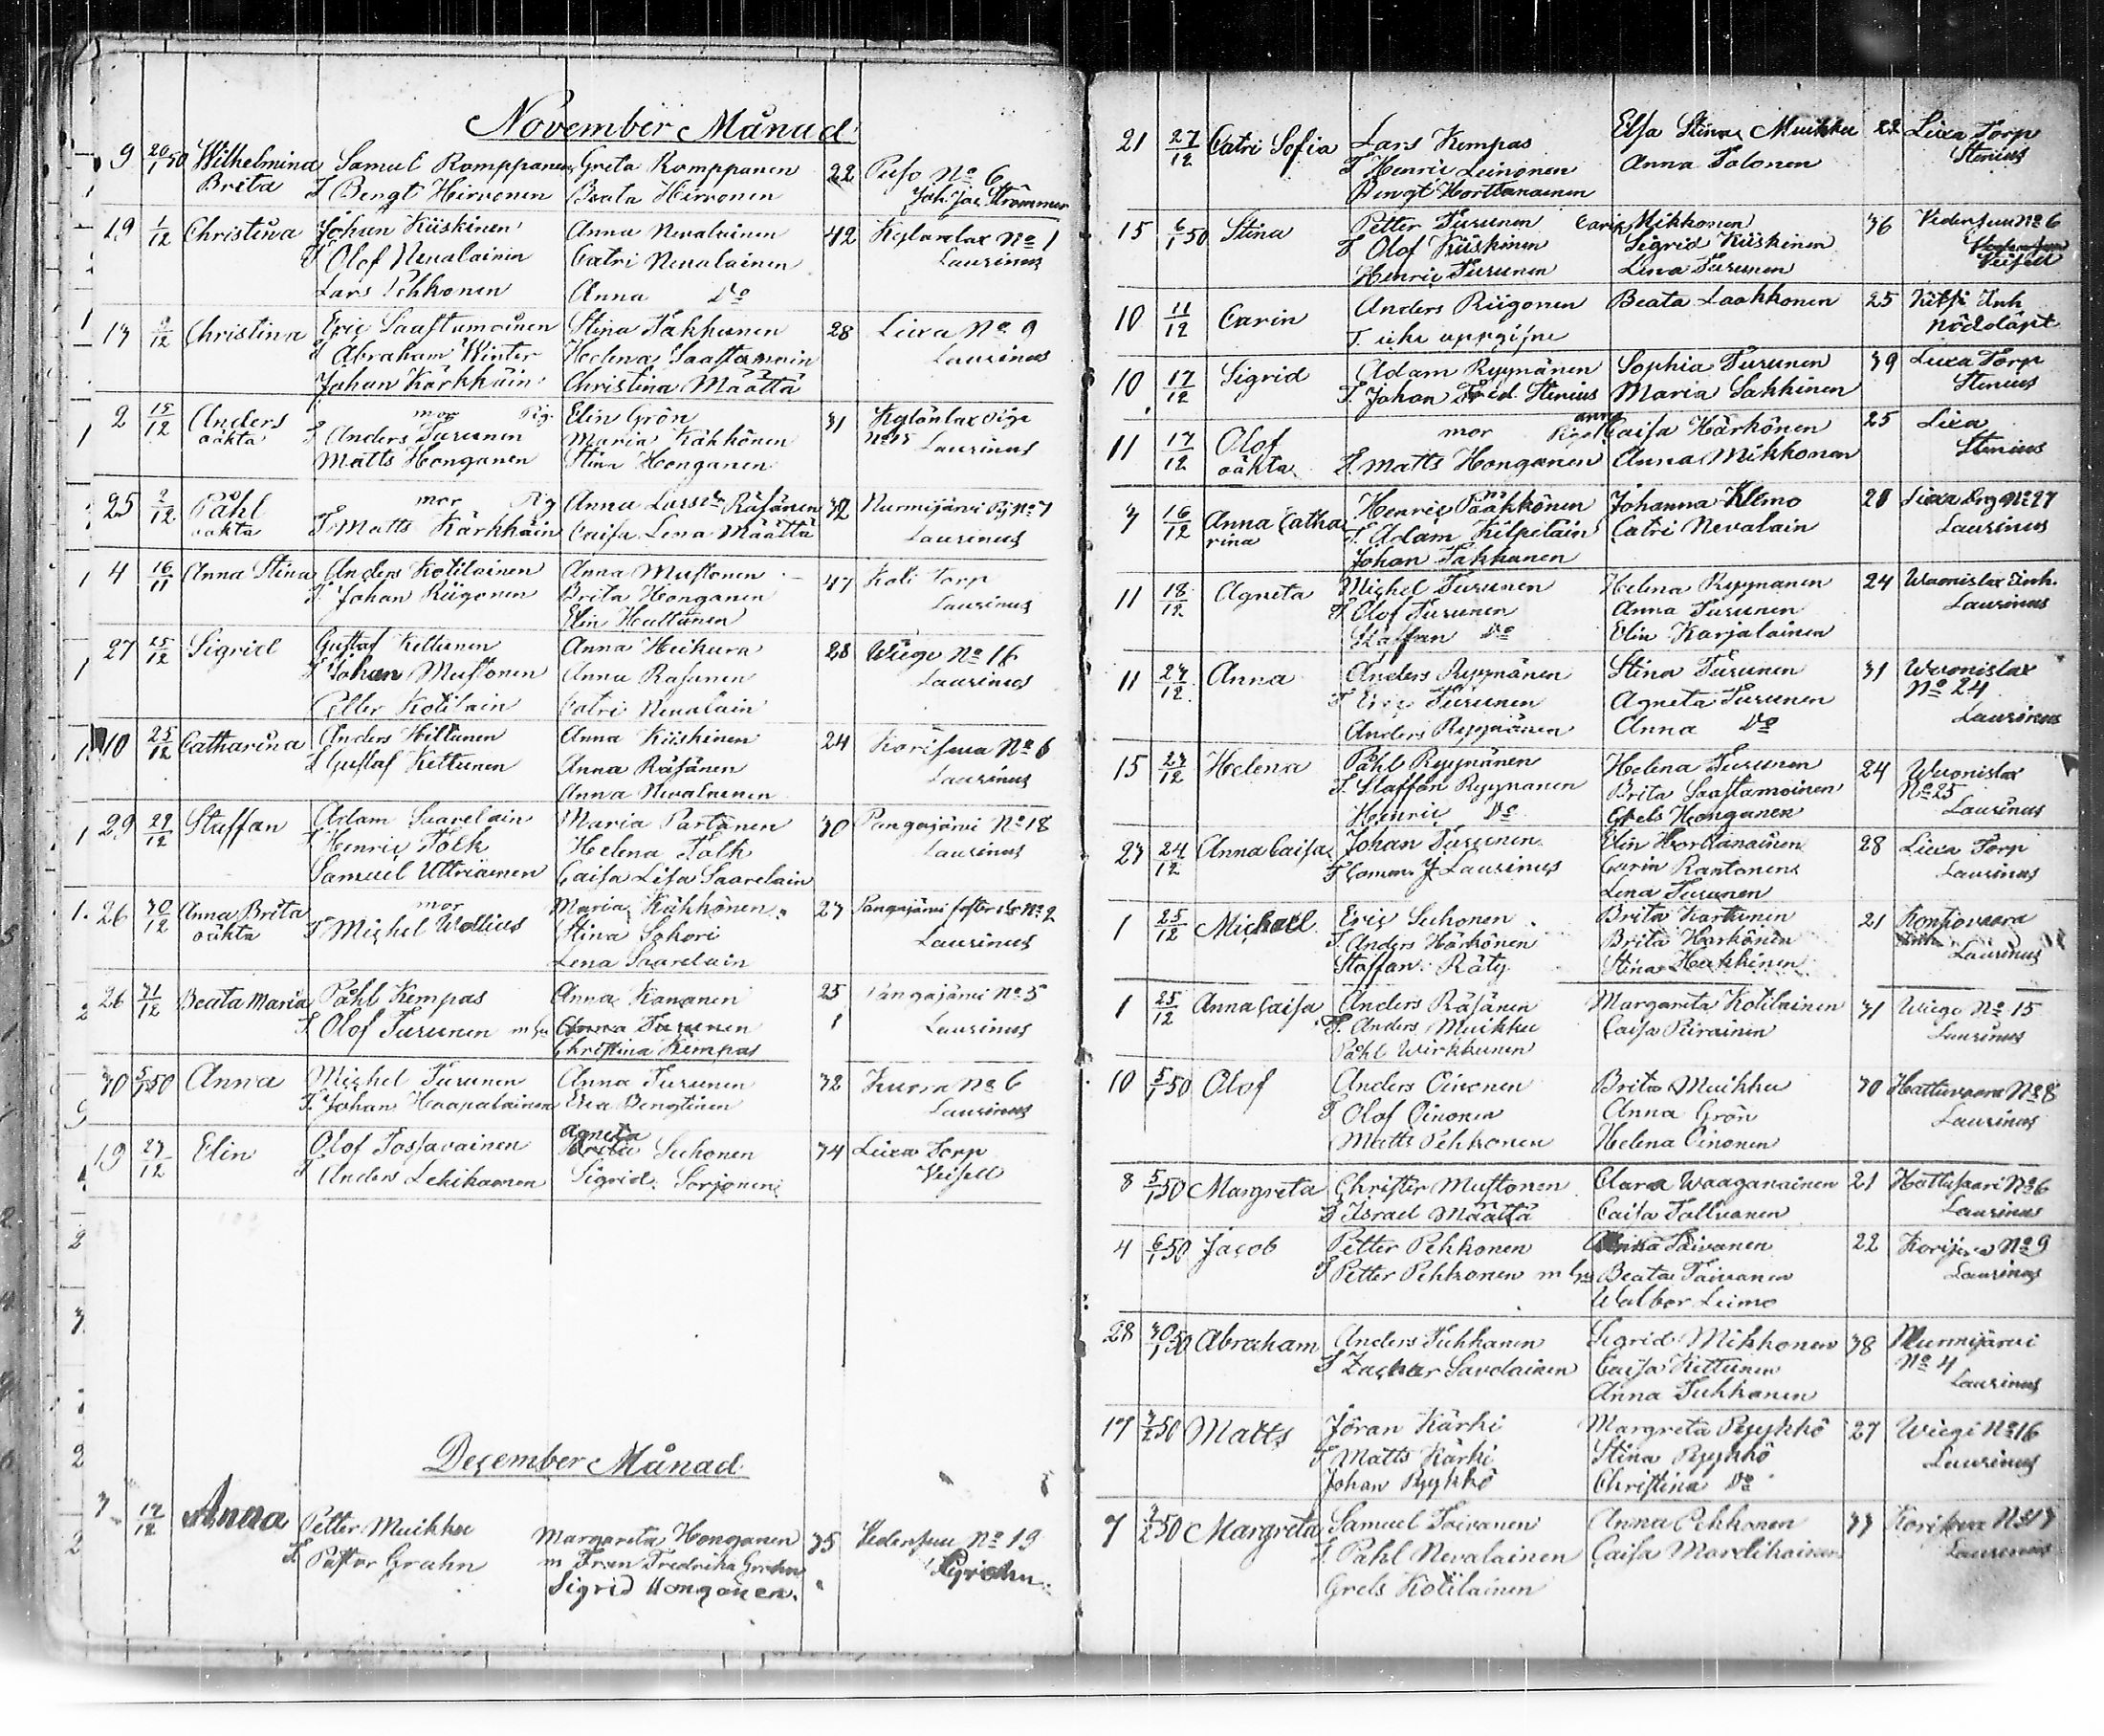 November Månad
9 20/1 50 Wilhelmina Samuel Romppanen Greta Romppanen 22 Puso No 6
Brita T Bengt Hirvonen Beata Hirvonen Joh. Jac. Strömmer
19 1/12 Christina Johan Kiiskinen Anna Nevalainen 42 Kylänlax No 1
T Olof Nevalainen Catri Nevalainen Laurinus
Lars Pehkonen Anna Do
13 2/12 Christina Eric Saastamoinen Stina Tahkunen 28 Liexa No 9
T Abraham Winter Helena Saastamoin Laurinus
Johan Kärkkäin Christina Määttä
2 15/12 Anders mor Pig. Elin Grön 31 Kylänlax
oäkta T Anders Turunen Maria Kähkönen No 15 Laurinus
Matts Honganen Stina Honganen
25 2/12 Påhl mor Pig Anna Larsdr Räsänen 32 Nurmijärvi No 7
oäkta T Matts Kärkkäin Caisa Lena Määttä Laurinus
4 16/11 Anna Stina Anders Kotilainen Anna Mustonen 47 Koli Torp
T Johan Riigonen Brita Honganen Laurinus
Elin Huttunen
27 25/12 Sigrid Gustaf Kettunen Anna Heikura 28 Wiegi No 16
T Johan Mustonen Anna Rasanen Laurinus
Petter Kotilain Catri Nevalain
10 25/12 Catharina Anders Kiltunen Anna Kiiskinen 24 Koriseva No 6
T Gustaf Kettunen Anna Räsänen Laurinus
Anna Nevalainen
29 29/12 Staffan Adam Saarelain Maria Partanen 30 Pangajärvi No 18
T Henric Folk Helena Folk Laurinus
Samuel Uttriainen Caisa Lisa Saarelain
26 30/12 Anna Brita mor Maria Kähkönen 23 Pangajärvi No 2
oäkta T Michel Wallius Stina Sohori Laurinus
Lena Saarelain
26 31/12 Beata Maria Påhl Kempas Anna Kananen 25 Pangajärvi No 5
T Olof Turunen m hu Anna Turunen 1 Laurinus
Christina Kempas
30 5/1 50 Anna Michel Turunen Anna Turunen 32 Kuora No 6
T. Johan Haapalainen Eva Bengtinen Laurinus
19 27/12 Elin Olof Tossavainen Agneta Suhonen 34 Liexa Torp
T Anders Lehikoinen Sigrid Sorjonen Veisell
December Månad
3 12/12 Anna Petter Muikku Margareta Honganen 35 Viedensuu No 19
T. Pastor Grahn m Frun Fredrika Grahn Grahn
Sigrid Honganen
21 27/12 Catri Sofia Lars Kempas Elsa Stina Muikku 22 Liexa Torp
T Henric Leinonen Anna Tolonen Stenius
Bengt Horttanainen
15 6/1 50 Stina Petter Turunen Carin Mikkonen 36 Viedensuu No 6
T Olof Kiiskinen Sigrid Kiiskinen
Henric Turunen Lina Turunen Veisell
10 11/12 Carin Anders Riigonen Beata Laakkonen 25 Inh
T. icke uppgifne nöddöpt
10 17/12 Sigrid Adam Ryynänen Sophia Turunen 39 Liexa Torp
T. Johan Fred. Stenius Maria Sakkinen Stenius
11 17/12 Olof mor Pigan Anna Caisa Härkönen 25 Liexa
oäkta T. Matts Honganen Anna Mikkonen Stenius
3 16/12 Anna Catha Henric Pääkkönen Johanna Klemo 28 Liexa No 27
rina T. Adam Kilpelain Catri Nevalain Laurinus
Johan Tahkunen
11 18/12 Agneta Michel Turunen Helena Ryynanen 24 Wuonislax Inh.
T Olof Turunen Anna Turunen Laurinus
Staffan Do Elin Karjalainen
11 23/12 Anna Anders Ryynänen Stina Turunen 31 Wuonislax
T Eric Turunen Agneta Turunen No 24
Anders Ryynänen Anna Do Laurinus
15 23/12 Helena Påhl Ryynänen Helena Turunen 24 Wuonislax
T. Staffan Ryynanen Brita Saastamoinen No 25
Henric Do Grels Honganen Laurinus
23 24/12 Anna Caisa Johan Turunen Elin Horttanainen 28 Liexa Torp
T Comm. J Laurinus Carin Rantonen Laurinus
Lena Turunen
1 25/12 Michael Eric Suhonen Brita Karttunen 21 Kontiovaara
T. Anders Härkönen Brita Harkönen Laurinus
Staffan Räty Stina Hakkinen
1 25/12 Anna Caisa Anders Räsänen Margareta Kotilainen 31 Wiegi No 15
T. Anders Muikku Caisa Piirainen Laurinus
Påhl Wirkkunen
10 5/1 50 Olof Anders Oinonen Brita Muikku 30 Hattuvaara No 8
T Olof Oinonen Anna Grön Laurinus
Matts Pehkonen Helena Oinonen
8 5/1 50 Margreta Christer Mustonen Clara Waaganainen 21 Hattusaari No 6
T Israel Määttä Caisa Tolvanen Laurinus
4 6/1 50 Jacob Petter Pehkonen Anna Taivanen 22 Koriseva No 9
T Petter Pehkonen m hu Beata Taivanen Laurinus
Walbor Leimo
28 30/1 50 Abraham Anders Tuhkanen Sigrid Mikkonen 38 Nurmijärvi
T Zachar Savolainen Caisa Kettunen No 4
Anna Tuhkanen Laurinus
17 3/2 50 Matts Jöran Kärki Margreta Pyykkö 27 Wiegi No 16
T Matts Kärki Stina Pyykkö Laurinus
Johan Pyykkö Christina Do
7 3/2 50 Margreta Samuel Toivanen Anna Pehkonen 33 Koriseva No 13
T. Påhl Nevalainen Caisa Mardikainen Laurinus
Grels Kotilainen